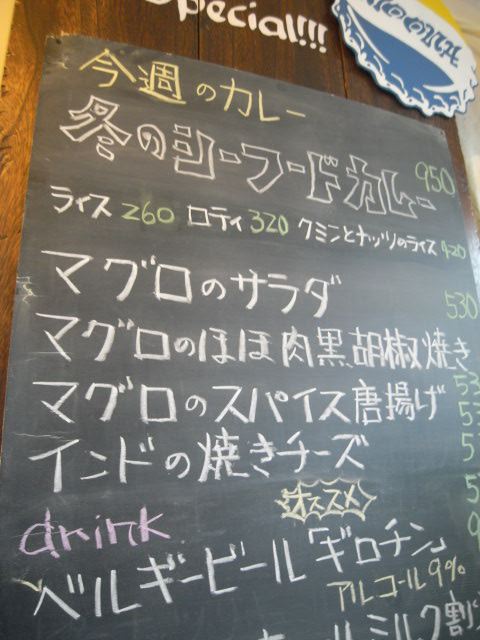 Special!!!
今週のカレー
冬のシーフードカレー 950
ライス 260 ロティ 320 クミンとナッツのライス 420
マグロのサラダ 530
マグロのほほ肉黒胡椒焼き
マグロのスパイス唐揚げ
インドの焼きチーズ
オススメ
drink
ベルギービール「ギロチン」
アルコール9%
ミルク割